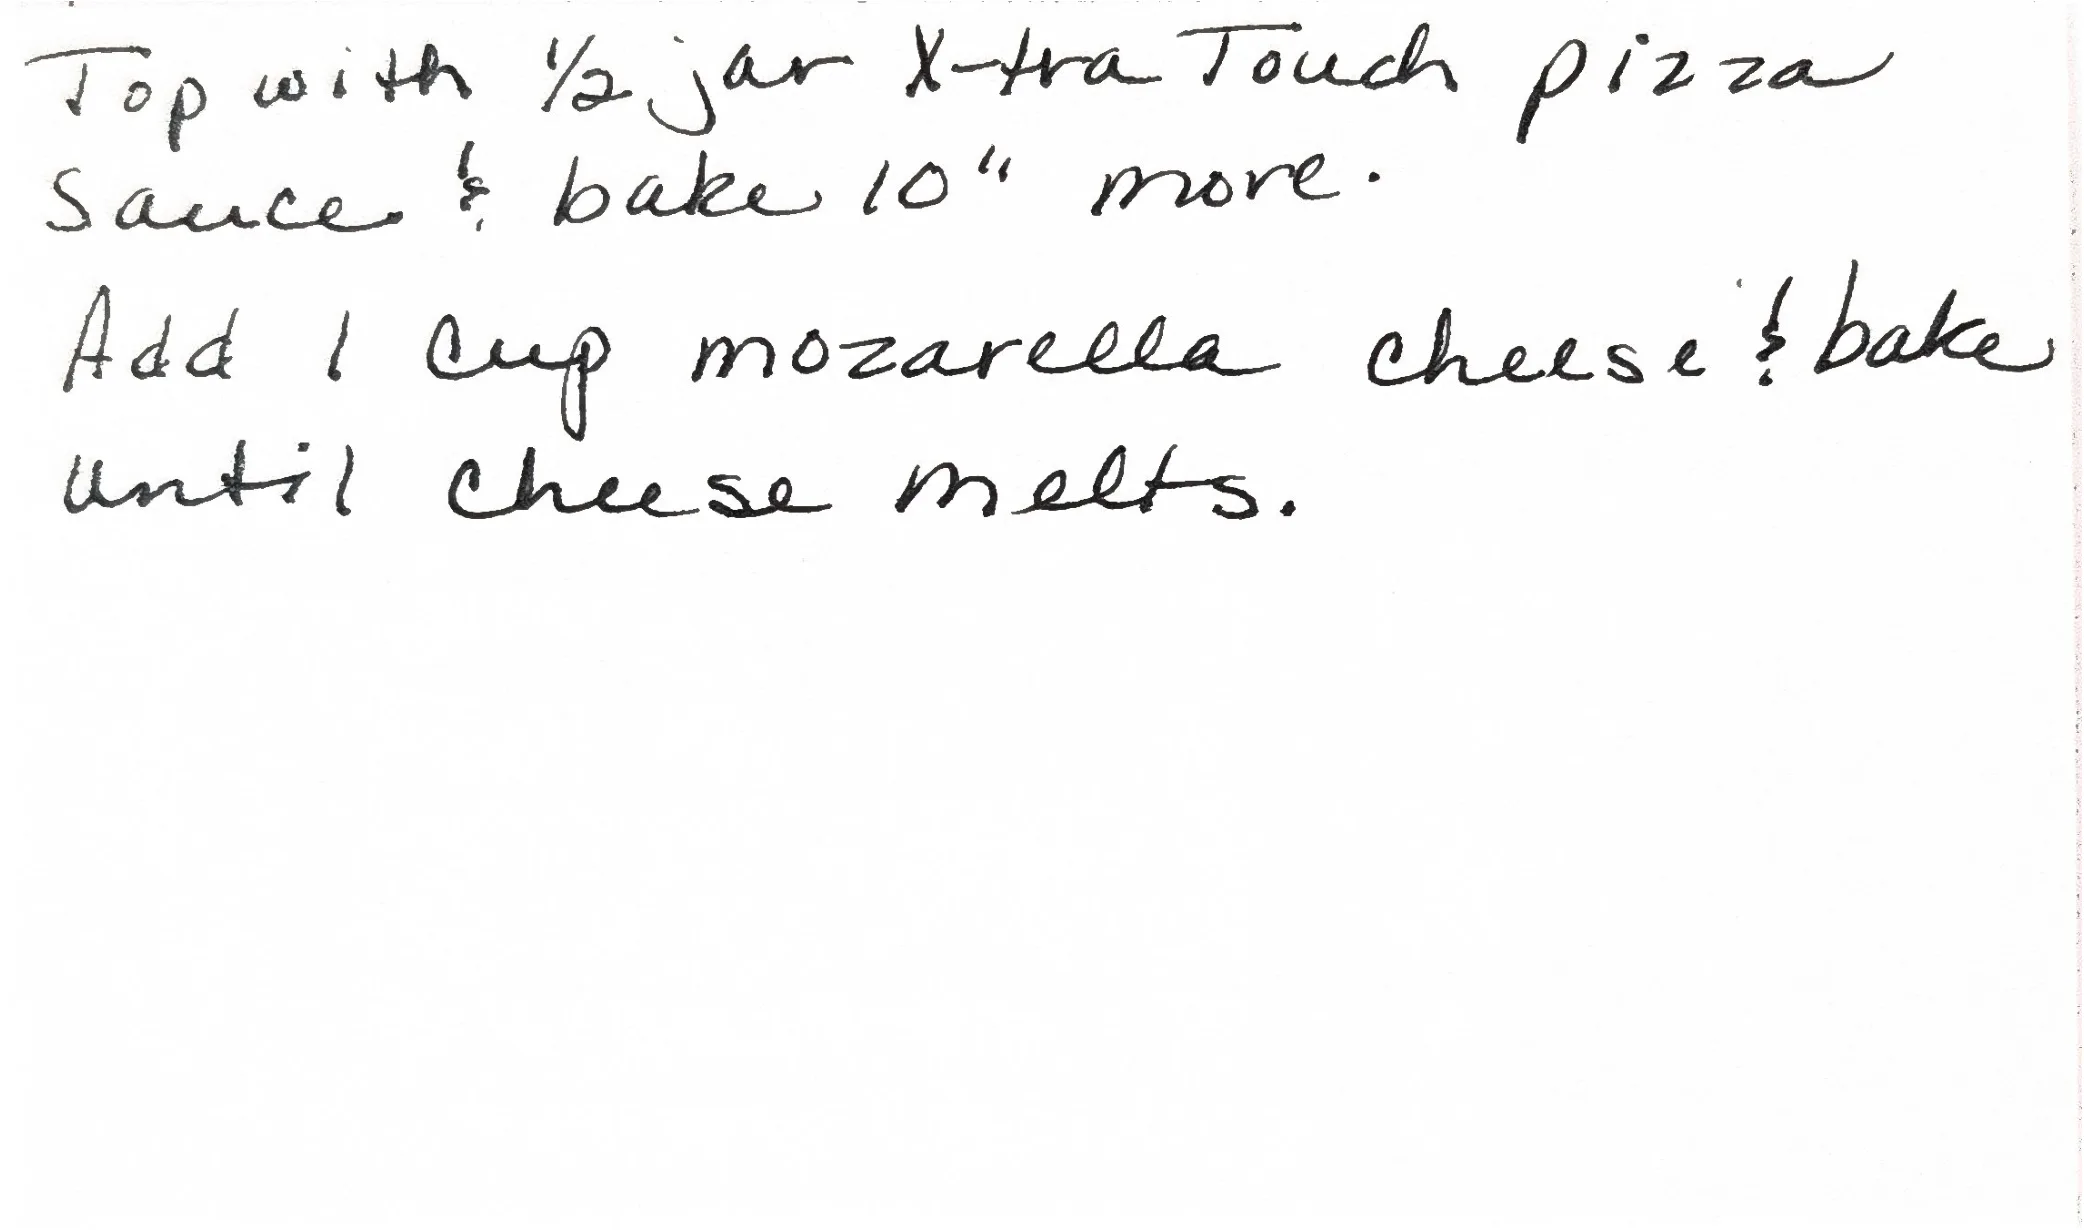 Top with 1/2 jar X-tra Touch pizza
Sauce & bake 10" more.
Add 1 cup mozarella cheese & bake
until cheese melts.